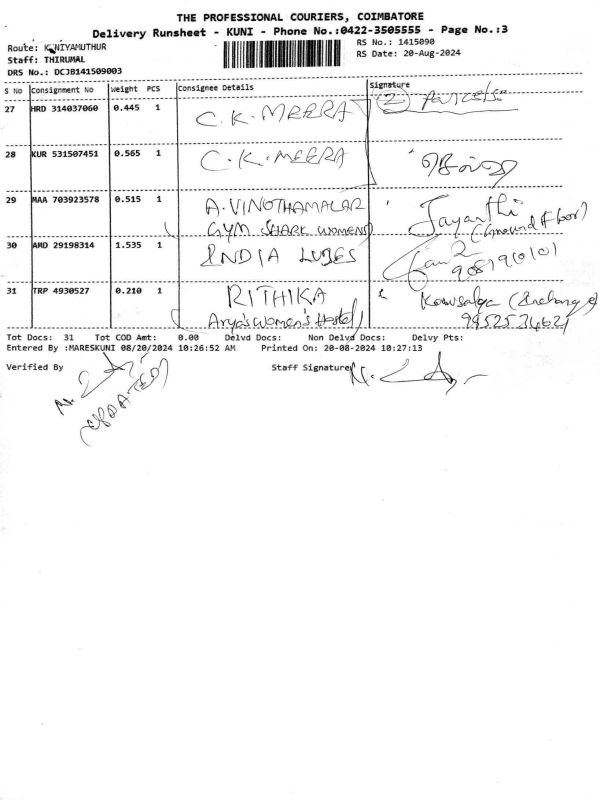 THE PROFESSIONAL COURIERS, COIMBATORE
Delivery Runsheet - KUNI - Phone No.:0422-3505555 - Page No.:3
Route: KUNIYAMUTHUR
RS No.: 1415090
Staff: THIRUMAL
RS Date: 20-Aug-2024
DRS No.: DCJB141509003
S No Consignment No Weight PCS Consignee Details Signature
27 HRD 314037060 0.445 1 C.K.MEERA (2) Parcels
28 KUR 531507451 0.565 1 C.K.MEERA
29 MAA 703923578 0.515 1 A.VINOTHAMALAR Jayanthi
(GYM SHARK WOMENS) (Ground Floor)
30 AMD 29198314 1.535 1 INDIA LUBES
31 TRP 4930527 0.210 1 RITHIKA Kowsalya (Incharge)
(Arya's Women's Hostel) 9952534621
Tot Docs: 31 Tot COD Amt: 0.00 Delvd Docs: Non Delvd Docs: Delvy Pts:
Entered By :MARESKUNI 08/20/2024 10:26:52 AM Printed On: 20-08-2024 10:27:13
Verified By Staff Signature
(UPDATED)